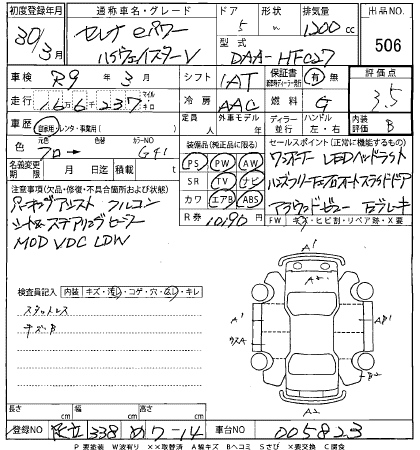 初度登録年月
30/3月
通称車名・グレード
セレナ eパワー
ハイウェイスターV
ドア
5
形状
W
排気量
1200cc
型式
DAA-HFC27
出品NO.
506
車検 R9年3月
シフト 1AT
保証書 有 無
走行 166237 マイル キロ
冷房 AAC
燃料 G
評価点
3.5
車歴 自家用・レンタ・事業用( )
定員 人
外車モデル 年
ディーラー 並行
ハンドル 左・右
内装評価 B
色 元色 クロ→ カラーNO G41
名義変更期限 月 日迄
積載量 t
装備品(純正品に限る)
PS PW AW
SR TV ナビ
カワ エアB ABS
R券 10190円
セールスポイント(正常に機能するもの)
ワンオーナー LEDヘッドライト
ハンズフリー両オートスライドドア
アラウンドビュー Eブレーキ
FW キズ・ヒビ割・リペア跡・X要
注意事項(欠品・修復・不具合箇所および状態)
パーキングアシスト フルコン
シート&ステアリングヒーター
MOD VDC LDW
検査員記入 内装 キズ・汚レ・コゲ・穴・ハレ・キレ
スタットレス
キズB
A1
A1
AB1
A1
B2
A2
長さ cm
幅 cm
高さ cm
登録NO 足立 338 め 7-14
車台NO 005823
P 要塗装 W波有り ××取替済 A線キズ Bヘコミ Sさび ×要交換 C腐食